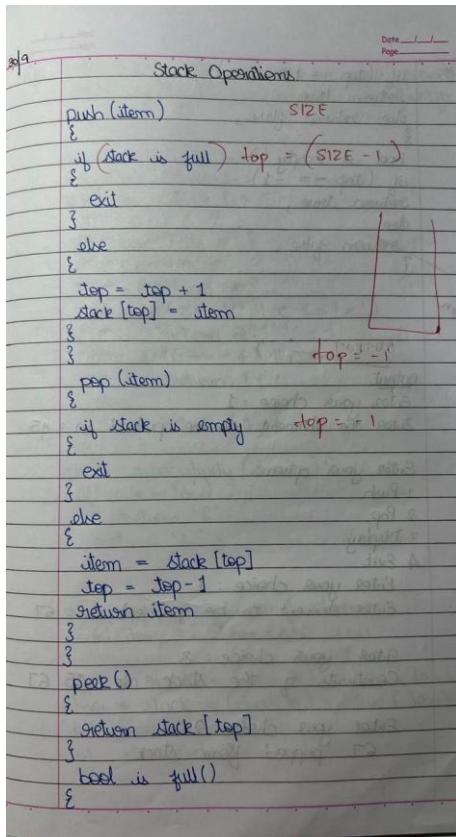 Date __/__/__
Page
20/9
Stack Operations
push (item) SIZE
{
if (stack is full) top = (SIZE - 1)
{
exit
}
else
{
top = top + 1
stack [top] = item
}
}
top = -1
pop (item)
{
if stack is empty top = -1
{
exit
}
else
{
item = stack [top]
top = top - 1
return item
}
}
peek ()
{
return stack [top]
}
bool is full ()
{